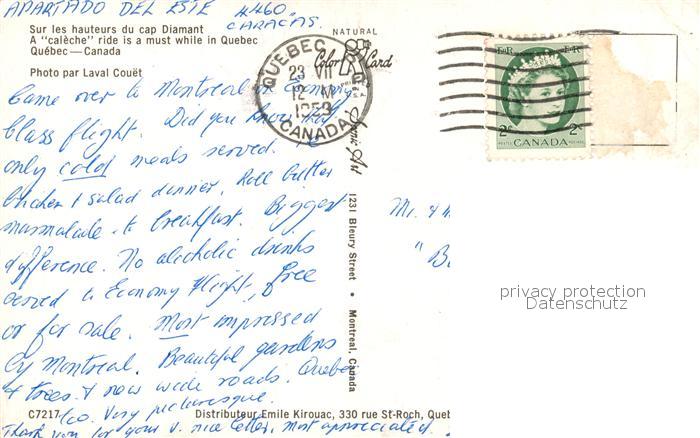 APARTADO DEL ESTE 4460.
CARACAS.
Sur les hauteurs du cap Diamant
A "calèche" ride is a must while in Quebec
Québec—Canada
Photo par Laval Couët
NATURAL
Color Card
QUEBEC
23 VII
12
1959
CANADA
2c CANADA 2c
POSTES POSTAGE
Came over to Montreal in Economy
Class flight. Did you know that
only cold meals served.
Chicken & salad dinner. Roll butter
marmalade to breakfast. Biggest
difference. No alcoholic drinks
served to Economy flight, free
or for sale. Most impressed
by Montreal. Beautiful gardens
& trees & new wide roads. Quebec
too. Very picturesque.
Thank you for your v. nice letter, most appreciated.
Scenic Art
1231 Bleury Street • Montreal, Canada
Mr. &
"B
privacy protection
Datenschutz
C7217
Distributeur Emile Kirouac, 330 rue St-Roch, Queb